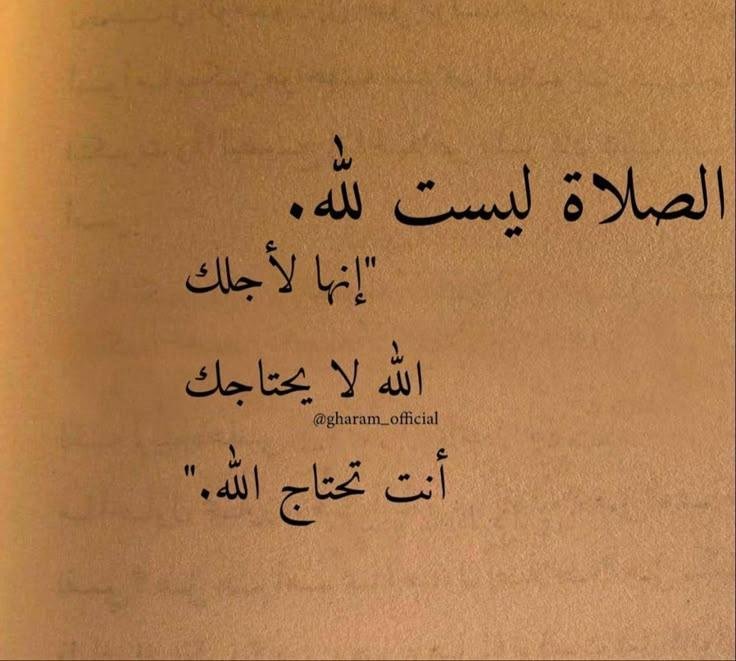 الصلاة ليست لله.
"إنها لأجلك
الله لا يحتاجك
@gharam_official
أنت تحتاج الله."